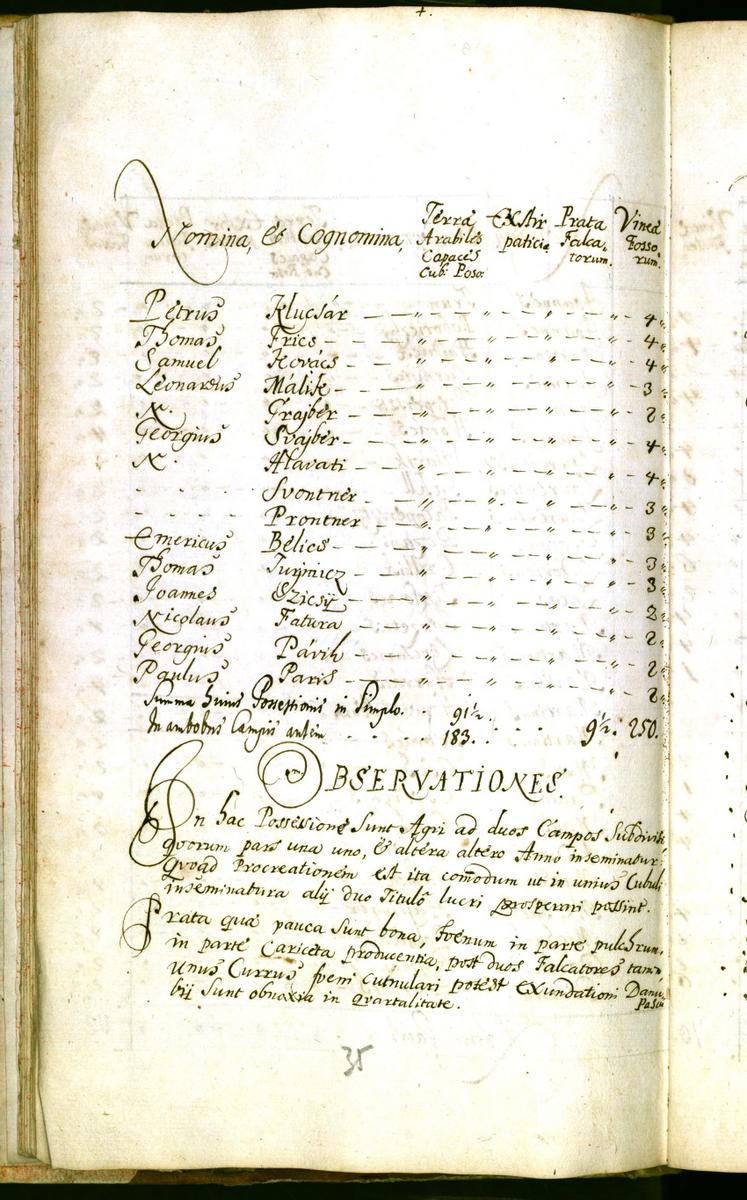 Nomina, & Cognomina,
Terræ Arabiles Capaces Cub: Poso:
Exstirpaticiæ
Prata Falcatorum.
Vineæ Fossorum.
Petrus Klucsár — — " — — " — — " — — " — 4"
Thomas Frics — — " — — " — — " — — " — 4"
Samuel Kovács — — " — — " — — " — — " — 4"
Leonardus Málik — — " — — " — — " — — " — 3"
N. Grajber — — " — — " — — " — — " — 2"
Georgius Svajber — — " — — " — — " — — " — 4"
N. Hlavati — — " — — " — — " — — " — 4"
- - - Svontner — — " — — " — — " — — " — 3"
- - - Prontner — — " — — " — — " — — " — 3"
Emericus Belics — — " — — " — — " — — " — 3"
Thomas — — " — — " — — " — — " — 3"
Joannes Szicsÿ — — " — — " — — " — — " — 2"
Nicolaus Fatura — — " — — " — — " — — " — 2"
Georgius Pávik — — " — — " — — " — — " — 2"
Paulus Paris — — " — — " — — " — — " — 2"
Summa huius Possessionis in Simplo. . . 91½.
In ambobus Campis autem . . . . 183. . . . 9½. 250.
OBSERVATIONES.
In hac Possessione sunt Agri ad duos Campos Subdivisi
quorum pars una uno, & altera altero Anno inseminatur:
Quoad Procreationem est ita comodum ut in unius Cubuli
inseminatura alij duo Titulo lucri prosperari possint.
Prata quæ pauca sunt bona, Foenum in parte pulchrum,
in parte Cariceta producentia, post duos Falcatores tamen
unus Currus foeni cumulari potest exundationi Danu-
bij sunt obnoxia in quartalitate.
Pascu
35